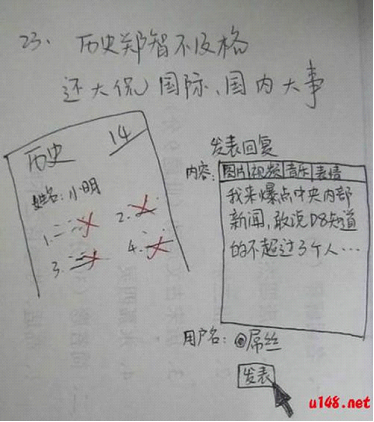 23. 历史郑智不及格
还大侃国际、国内大事
历史 14
姓名:小明
1. 2.
3. 4.
发表回复
内容:
图片 视频 音乐 表情
我来爆点中央内部
新闻,敢说D8知道
的不超过3个人…
用户名:@屌丝
发表
u148.net